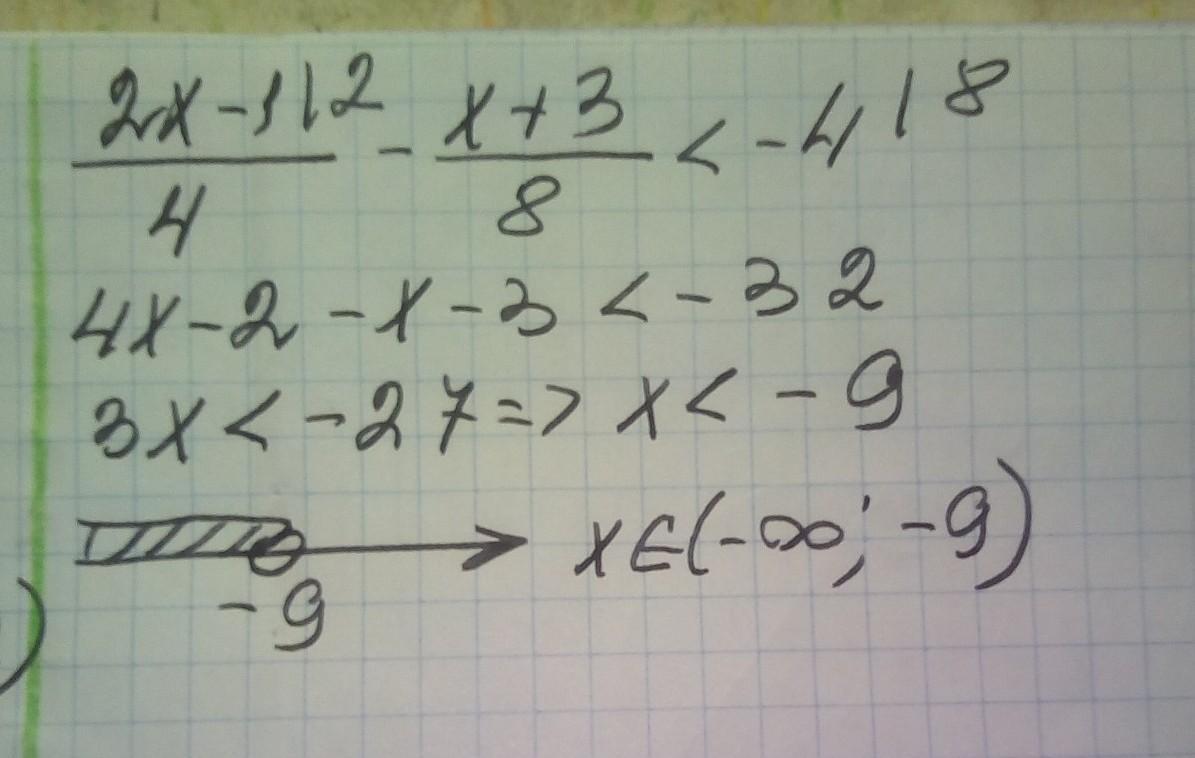 (2x-1|2)/4 - (x+3)/8 < -4 | 8
4x-2-x-3<-32
3x<-27=>x<-9
-9 x∈(-∞;-9)
)